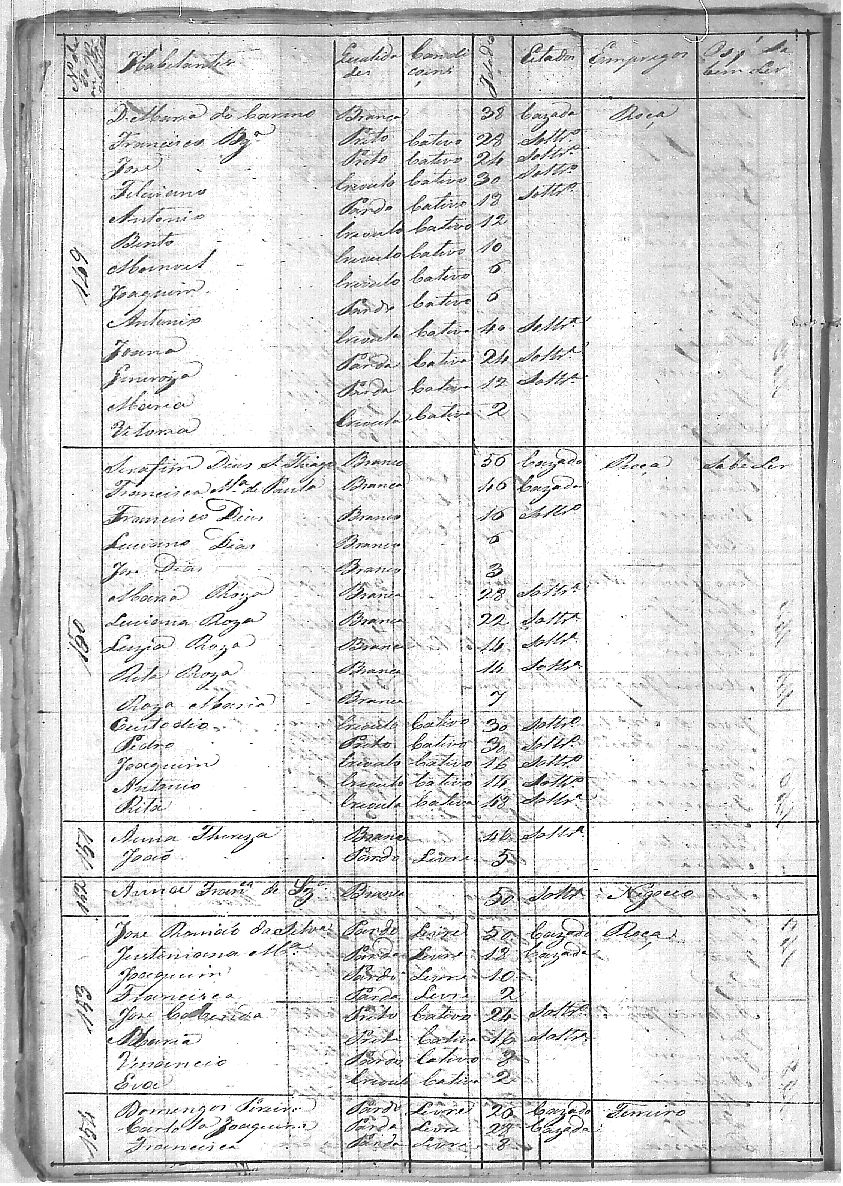 Habitantes Qualidades Condiçoins Idades Estados Empregos Os q' sabem Ler
149
D. Maria do Carmo Branca 38 Cazada Roça
Francisco Bg.ª Preto Cativo 28 Soltr.º
José Preto Cativo 24 Soltr.º
Feliciano Creoulo Cativo 30 Soltr.º
Antonio Pardo Cativo 18 Soltr.º
Bento Creoulo Cativo 12
Manoel Creoulo Cativo 10
Joaquim Creoulo Cativo 6
Antonio Pardo Cativo 6
Joana Creoula Cativa 40 Soltr.ª
Generoza Parda Cativa 24 Soltr.ª
Maria Parda Cativa 12 Soltr.ª
Vitoria Creoula Cativa 2
150
Serafim Dias S. Thiago Branco 56 Cazado Roça Sabe Ler
Francisca M.ª de Paula Branca 46 Cazada
Francisco Dias Branco 16 Soltr.º
Luciano Dias Branco 6
José Dias Branco 3
Maria Roza Branca 28 Soltr.ª
Luciana Roza Branca 22 Soltr.ª
Luzia Roza Branca 14 Soltr.ª
Rita Roza Branca 14 Soltr.ª
Roza Maria Branca 7
Custodio Creoulo Cativo 30 Soltr.º
Pedro Preto Cativo 30 Soltr.º
Joaquim Creoulo Cativo 16 Soltr.º
Antonio Creoulo Cativo 14 Soltr.º
Rita Creoula Cativa 42 Soltr.ª
151
Anna Thereza Branca 46 Soltr.ª
João Pardo Livre 5
152
Anna Fran.ca de Branca 50 Soltr.ª Negocio
153
José da Silva Pardo Livre 50 Cazado Roça
Justiniana M.ª Parda Livre 12 Cazada
Joaquim Pardo Livre 10
Francisca Parda Livre 2
José Preto Cativo 24 Soltr.º
Maria Preta Cativa 16 Soltr.ª
Venancio Pardo Cativo 2
Eva Creoula Cativa 2
154
Domingos Pardo Livre 26 Cazado
Joaquina Parda Livre 28 Cazada
Francisca Parda Livre 8